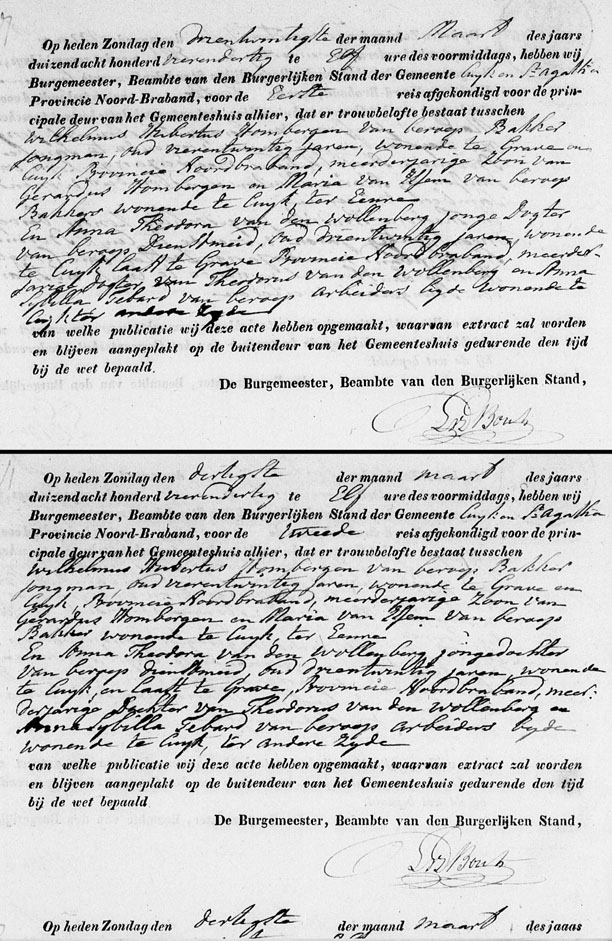 Op heden Zondag den drientwintigste der maand Maart des jaars
duizend acht honderd vierendertig te Elf ure des voormiddags, hebben wij
Burgemeester, Beambte van den Burgerlijken Stand der Gemeente Cuyk en St Agatha
Provincie Noord-Braband, voor de Eerste reis afgekondigd voor de prin-
cipale deur van het Gemeenteshuis alhier, dat er trouwbelofte bestaat tusschen
Wilhelmus Hubertus Hombergen van beroep Bakker
Jongman, oud vierentwintig jaren, wonende te Grave en
Cuyk Provincie Noordbraband, meerderjarige Zoon van
Gerardus Hombergen en Maria van Essem van beroep
Bakkers wonende te Cuyk, ter Eenre
En Anna Theodora van den Wollenberg jonge Dogter
van beroep Dienstmeid, oud drientwintig Jaren, wonende
te Cuyk laast te Grave Provincie Noordbraband, meerder-
jarige Dogter van Theodorus van den Wollenberg en Anna
Sibilla Tebard van beroep Arbeiders beyde wonende te
Cuyk ter andere Zyde
van welke publicatie wij deze acte hebben opgemaakt, waarvan extract zal worden
en blijven aangeplakt op de buitendeur van het Gemeenteshuis gedurende den tijd
bij de wet bepaald.
De Burgemeester, Beambte van den Burgerlijken Stand,
Op heden Zondag den dertigste der maand maart des jaars
duizend acht honderd vierendertig te Elf ure des voormiddags, hebben wij
Burgemeester, Beambte van den Burgerlijken Stand der Gemeente Cuyk en St Agatha
Provincie Noord-Braband, voor de tweede reis afgekondigd voor de prin-
cipale deur van het Gemeenteshuis alhier, dat er trouwbelofte bestaat tusschen
Wilhelmus Hubertus Hombergen van beroep Bakker
Jongman, oud vierentwintig jaren, wonende te Grave en
Cuyk, Provincie Noordbraband, meerderjarige Zoon van
Gerardus Hombergen en Maria van Essem van beroep
Bakker wonende te Cuyk, ter Eenre
En Anna Theodora van den Wollenberg, jongedochter
van beroep dienstmeid, oud drientwintig jaren, wonende
te Cuyk, en laast te Grave, Provincie Noordbraband, meer-
derjarige Dochter van Theodorus van den Wollenberg en
Anna Sybilla Tebard van beroep Arbeiders beyde
wonende te Cuyk, ter andere Zyde
van welke publicatie wij deze acte hebben opgemaakt, waarvan extract zal worden
en blijven aangeplakt op de buitendeur van het Gemeenteshuis gedurende den tijd
bij de wet bepaald
De Burgemeester, Beambte van den Burgerlijken Stand,
Op heden Zondag den dertigste der maand maart des jaars